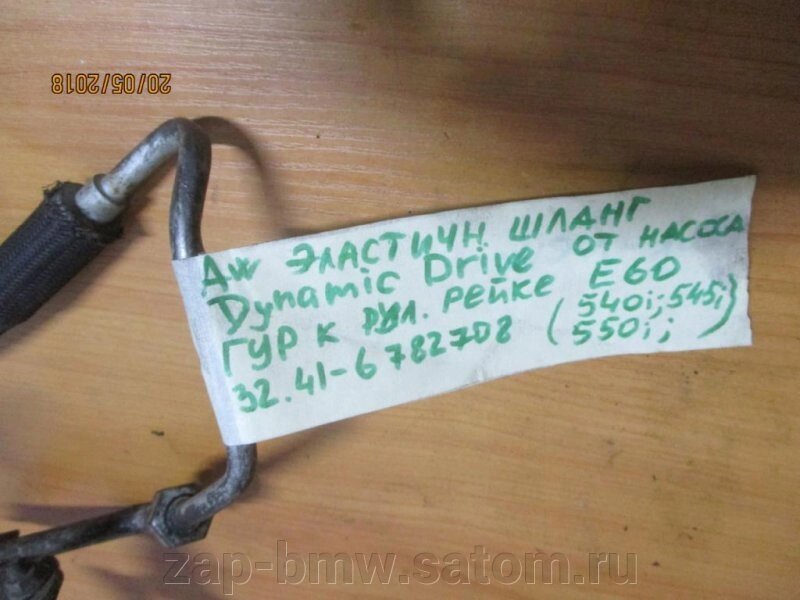 20/05/2018
ДW ЭЛАСТИЧН ШЛАНГ
Dynamic Drive ОТ НАСОСА
ГУР К РУЛ. РЕЙКЕ E60
32.41-6 782702 (540i; 545i;
550i;)
zap-bmw.satom.ru